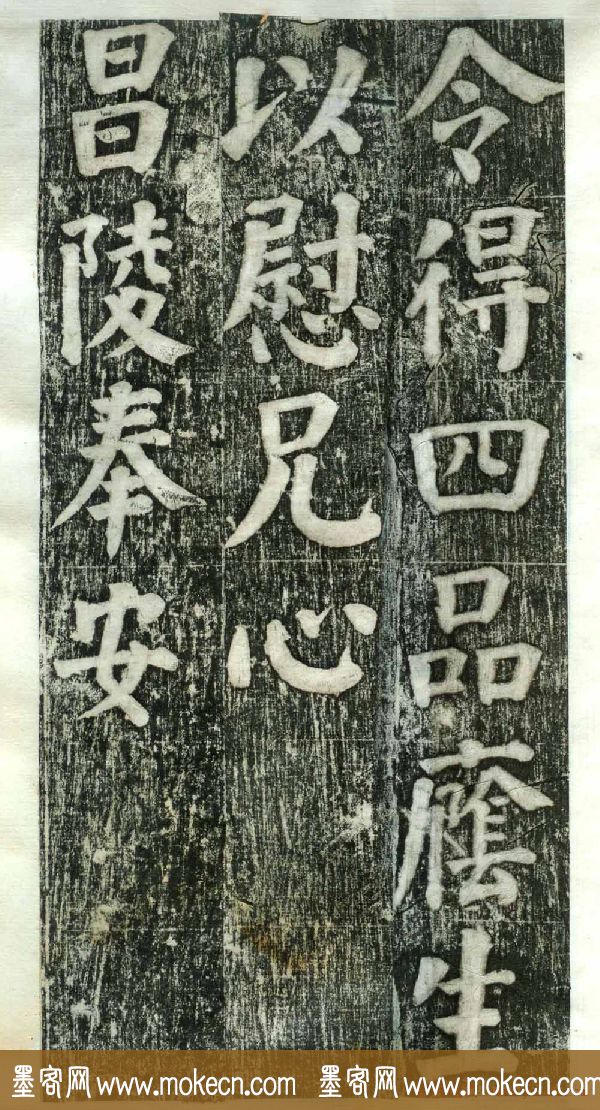 令得四品廕生
以慰兄心
昌陵奉安
墨客网 www.mokecn.com 墨客网 www.mokecn.com